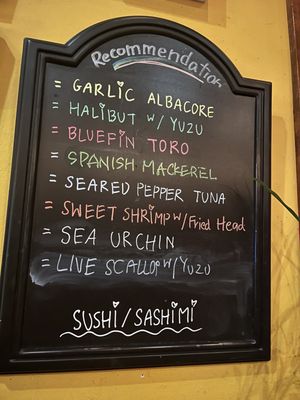 Recommendation
= GARLIC ALBACORE
= HALIBUT W/ YUZU
= BLUEFIN TORO
= SPANISH MACKEREL
= SEARED PEPPER TUNA
= SWEET SHRIMP W/ Fried Head
= SEA URCHIN
= LIVE SCALLOP W/ YUZU
SUSHI / SASHIMI